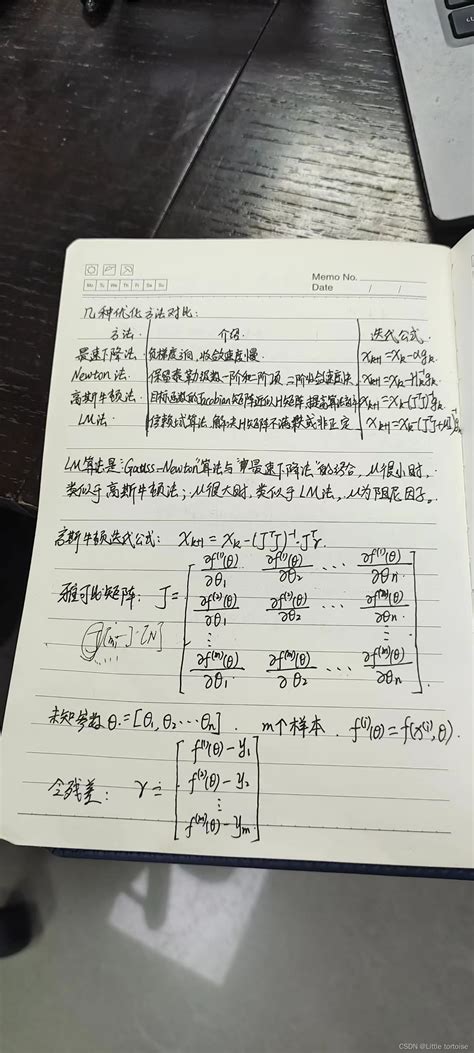 Memo No.
Mo Tu We Th Fr Sa Su
Date / /
几种优化方法对比：
方法 介绍 迭代公式
最速下降法 负梯度方向，收敛速度慢 x_{k+1}=x_k-αg_k
Newton法 保留泰勒级数一阶和二阶项 二阶收敛速度快 x_{k+1}=x_k-H_k^{-1}g_k
高斯牛顿法 目标函数的Jacobian矩阵近似H矩阵，提高算法 x_{k+1}=x_k-(J^TJ)^{-1}g_k
LM法 信赖域算法，解决H矩阵不满秩或非正定 x_{k+1}=x_k-(J^TJ+μI)^{-1}g_k
LM算法是"Gauss-Newton"算法与"最速下降法"的结合，μ很小时，
类似于高斯牛顿法；μ很大时，类似于LM法，μ为阻尼因子。
高斯牛顿迭代公式： x_{k+1} = x_k-(J^TJ)^{-1}·J^Tr
雅可比矩阵： J= [ ∂f^{(1)}(θ)/∂θ_1 ∂f^{(1)}(θ)/∂θ_2 ... ∂f^{(1)}(θ)/∂θ_n
∂f^{(2)}(θ)/∂θ_1 ∂f^{(2)}(θ)/∂θ_2 ... ∂f^{(2)}(θ)/∂θ_n
⋮ ⋮
∂f^{(m)}(θ)/∂θ_1 ∂f^{(m)}(θ)/∂θ_2 ... ∂f^{(m)}(θ)/∂θ_n ]
未知参数θ=[θ_1,θ_2…θ_n]，m个样本，f^{(i)}(θ)=f(x^{(i)},θ)
令残差： r= [ f^{(1)}(θ)-y_1
f^{(2)}(θ)-y_2
⋮
f^{(m)}(θ)-y_m ]
CSDN @Little tortoise